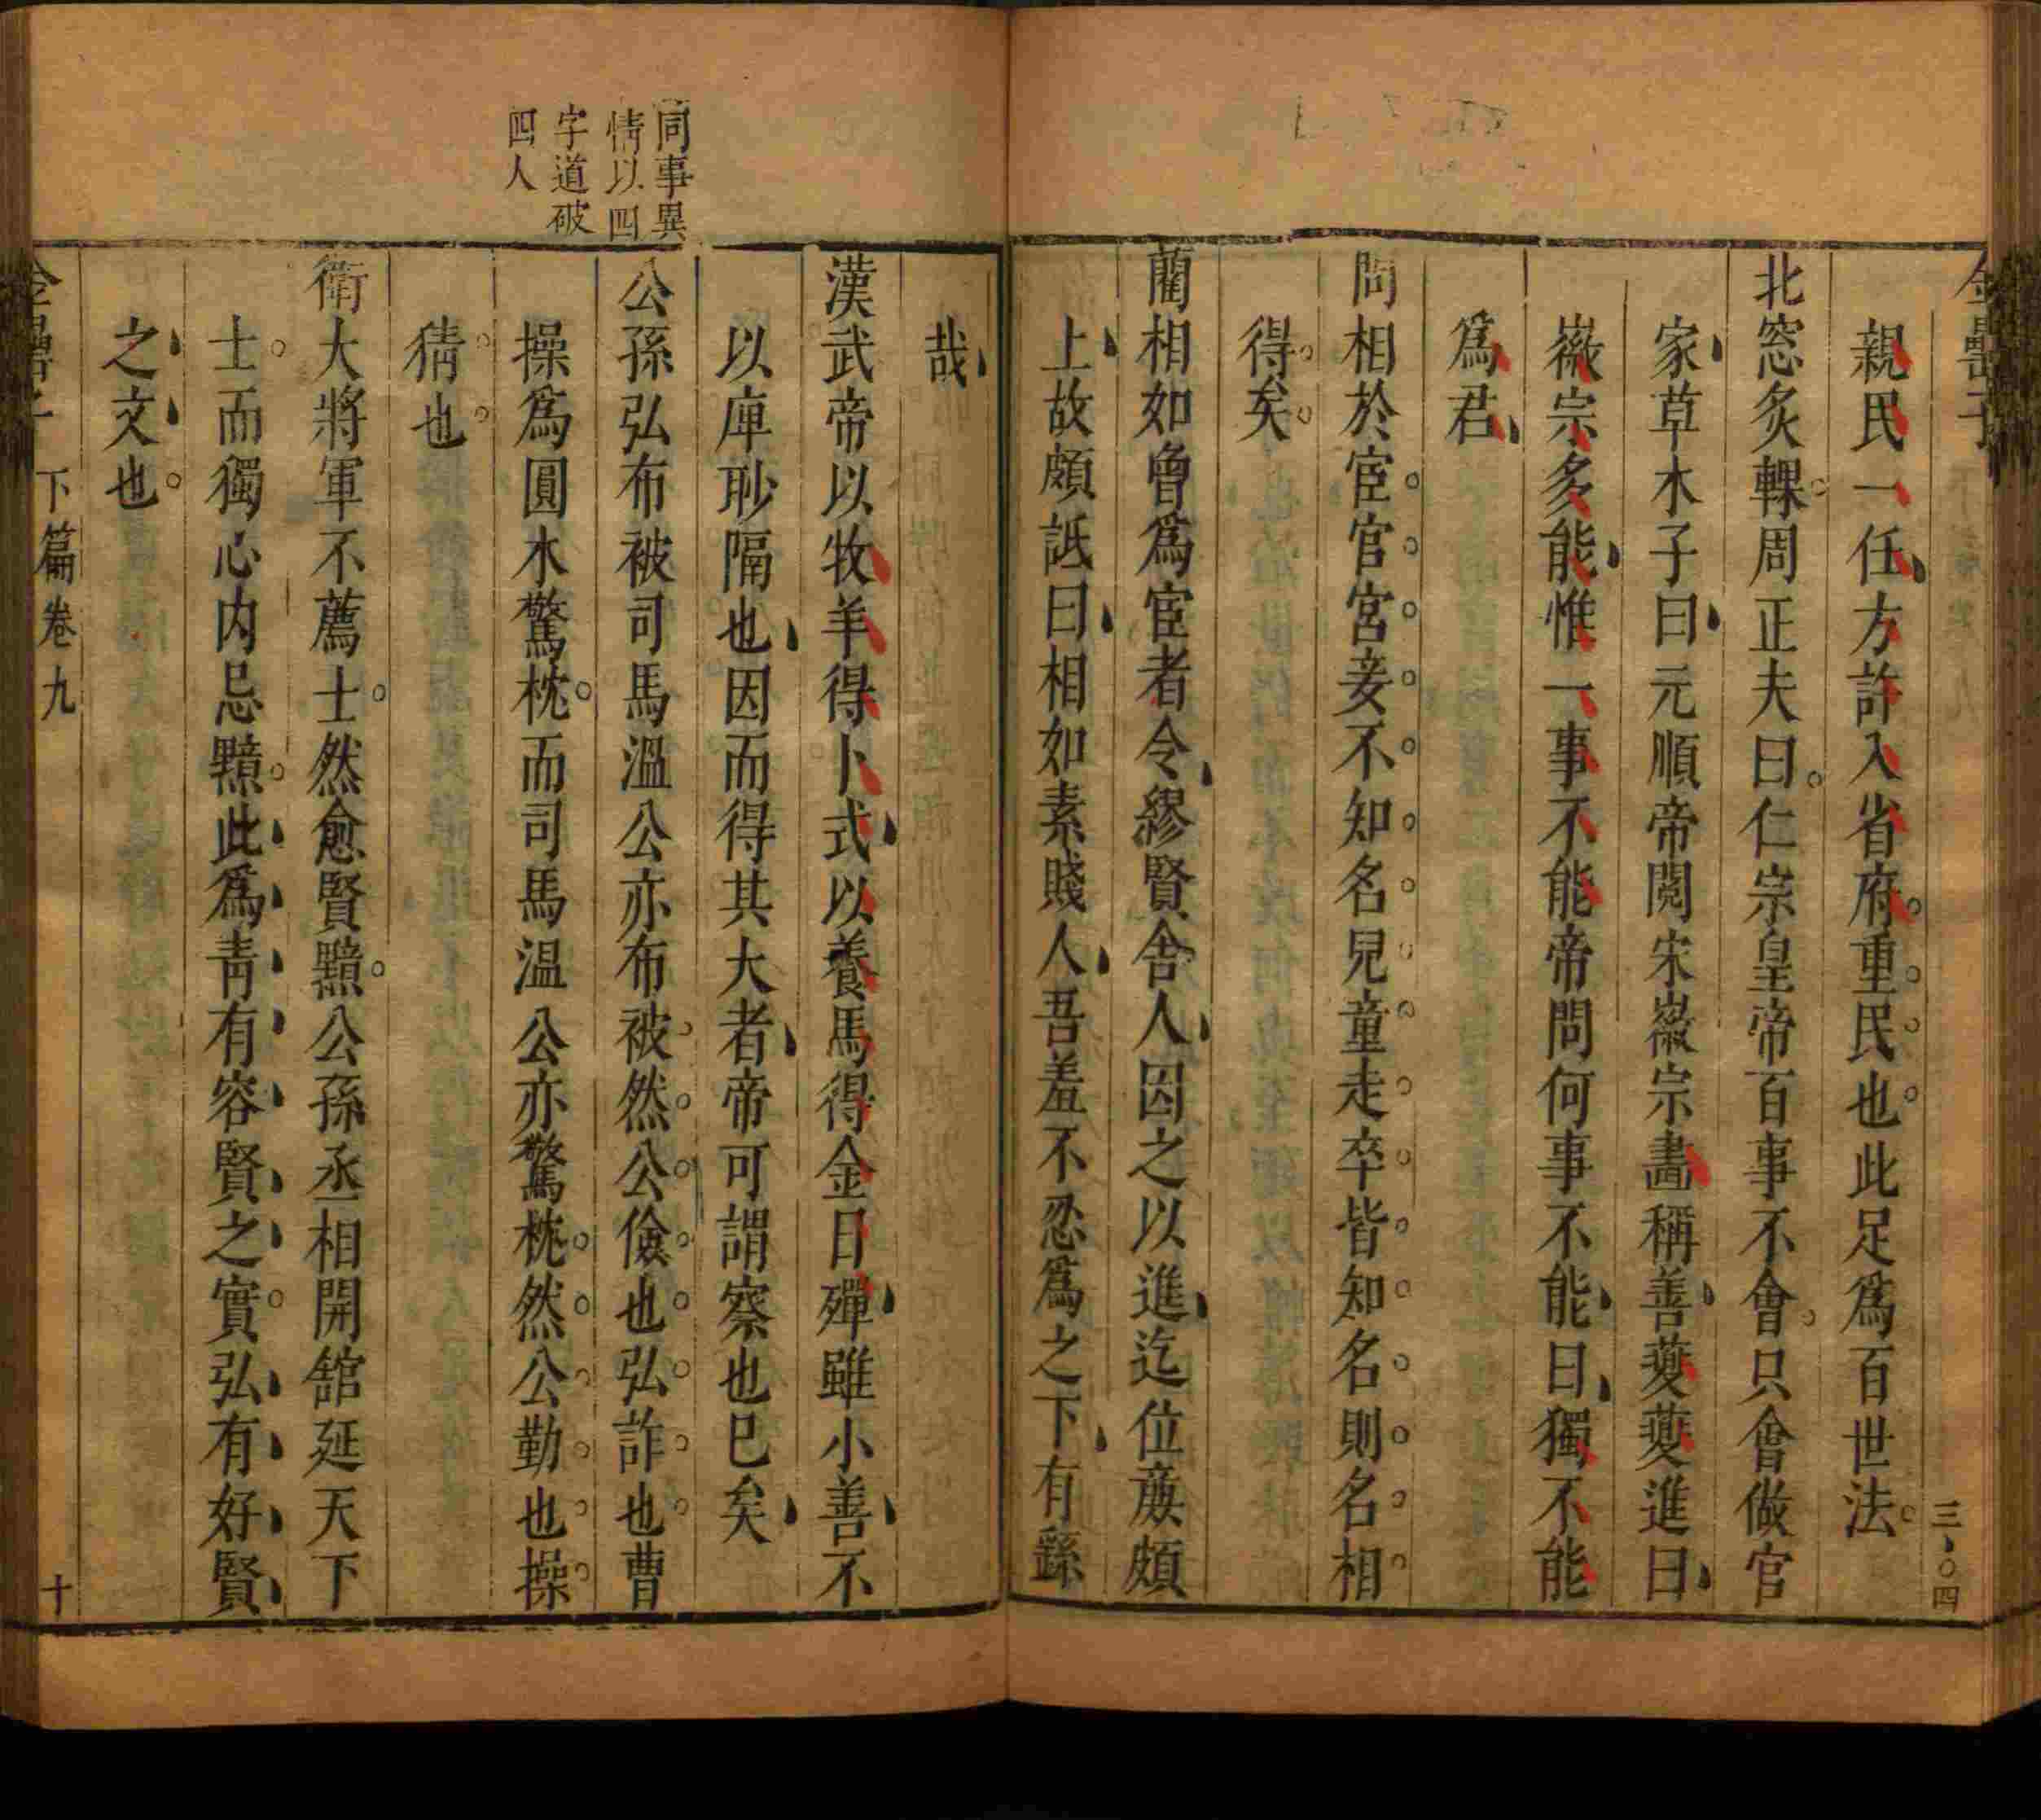 親民一任方許入省府重民也此足爲百世法
北窓炙輠周正夫曰仁宗皇帝百事不會只會做官
家草木子曰元順帝閱宋徽宗畫稱善巙巙進曰
徽宗多能惟一事不能帝問何事不能曰獨不能
爲君
問相於宦官宮妾不知名兒童走卒皆知名則名相
得矣
藺相如曾爲宦者令繆賢舍人因之以進迄位廉頗
上故頗詆曰相如素賤人吾羞不忍爲之下有繇
哉
漢武帝以牧羊得卜式以養馬得金日磾雖小善不
以庳眇隔也因而得其大者帝可謂察也已矣
同事異
情以四
字道破
四人
公孫弘布被司馬溫公亦布被然公儉也弘詐也曹
操爲圓木驚枕而司馬温公亦驚枕然公勤也操
猜也
衛大將軍不薦士然愈賢黯公孫丞相開舘延天下
士而獨心内忌黯此爲靑有容賢之實弘有好賢
之文也
下篇卷九
十